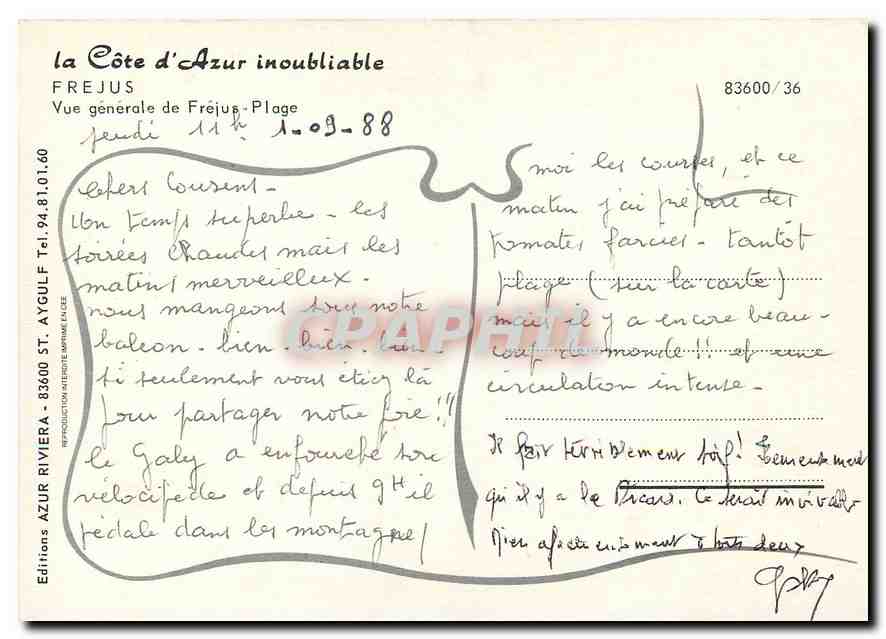 la Côte d'Azur inoubliable
FREJUS
Vue générale de Fréjus-Plage
83600/36
jeudi 11h 1-09-88
chers Cousins -
Un temps superbe - les
soirées chaudes mais les
matins merveilleux -
nous mangeons sous notre
balcon - bien - bien - bien -
si seulement vous étiez là
pour partager notre joie !!
le Gaby a enfourché son
vélocipède et depuis 9H il
pédale dans les montagnes /
moi les courses, et ce
matin j'ai préparé des
tomates farcies - tantôt
plage (sur la carte)
mais il y a encore beau-
coup de monde !! et une
circulation intense -
Il fait terriblement soif ! Heureusement
qu'il y a le Ricard. Ce serait invivable
Bien affectueusement à tous deux
Gaby
Editions AZUR RIVIERA - 83600 ST. AYGULF Tel. 94.81.01.60
REPRODUCTION INTERDITE IMPRIME EN CEE
CPAPHIL